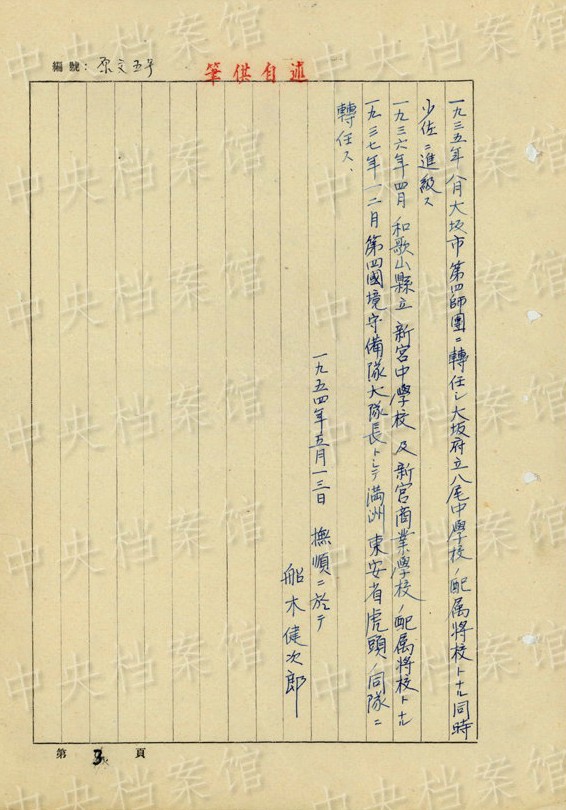 編號：原文五号
筆供自述
一九三五年八月大坂市第四師團ニ轉任シ大坂府立八尾中學校ノ配属将校トナル同時
少佐ニ進級ス
一九三六年四月和歌山縣立新宮中學校及新宮商業學校ノ配属将校トナル
一九三七年一二月第四國境守備隊大隊長トシテ満洲東安省虎頭ノ同隊ニ
轉任ス、
一九五四年五月一三日 撫順ニ於テ
船木健次郎
第 3 頁
中央档案馆